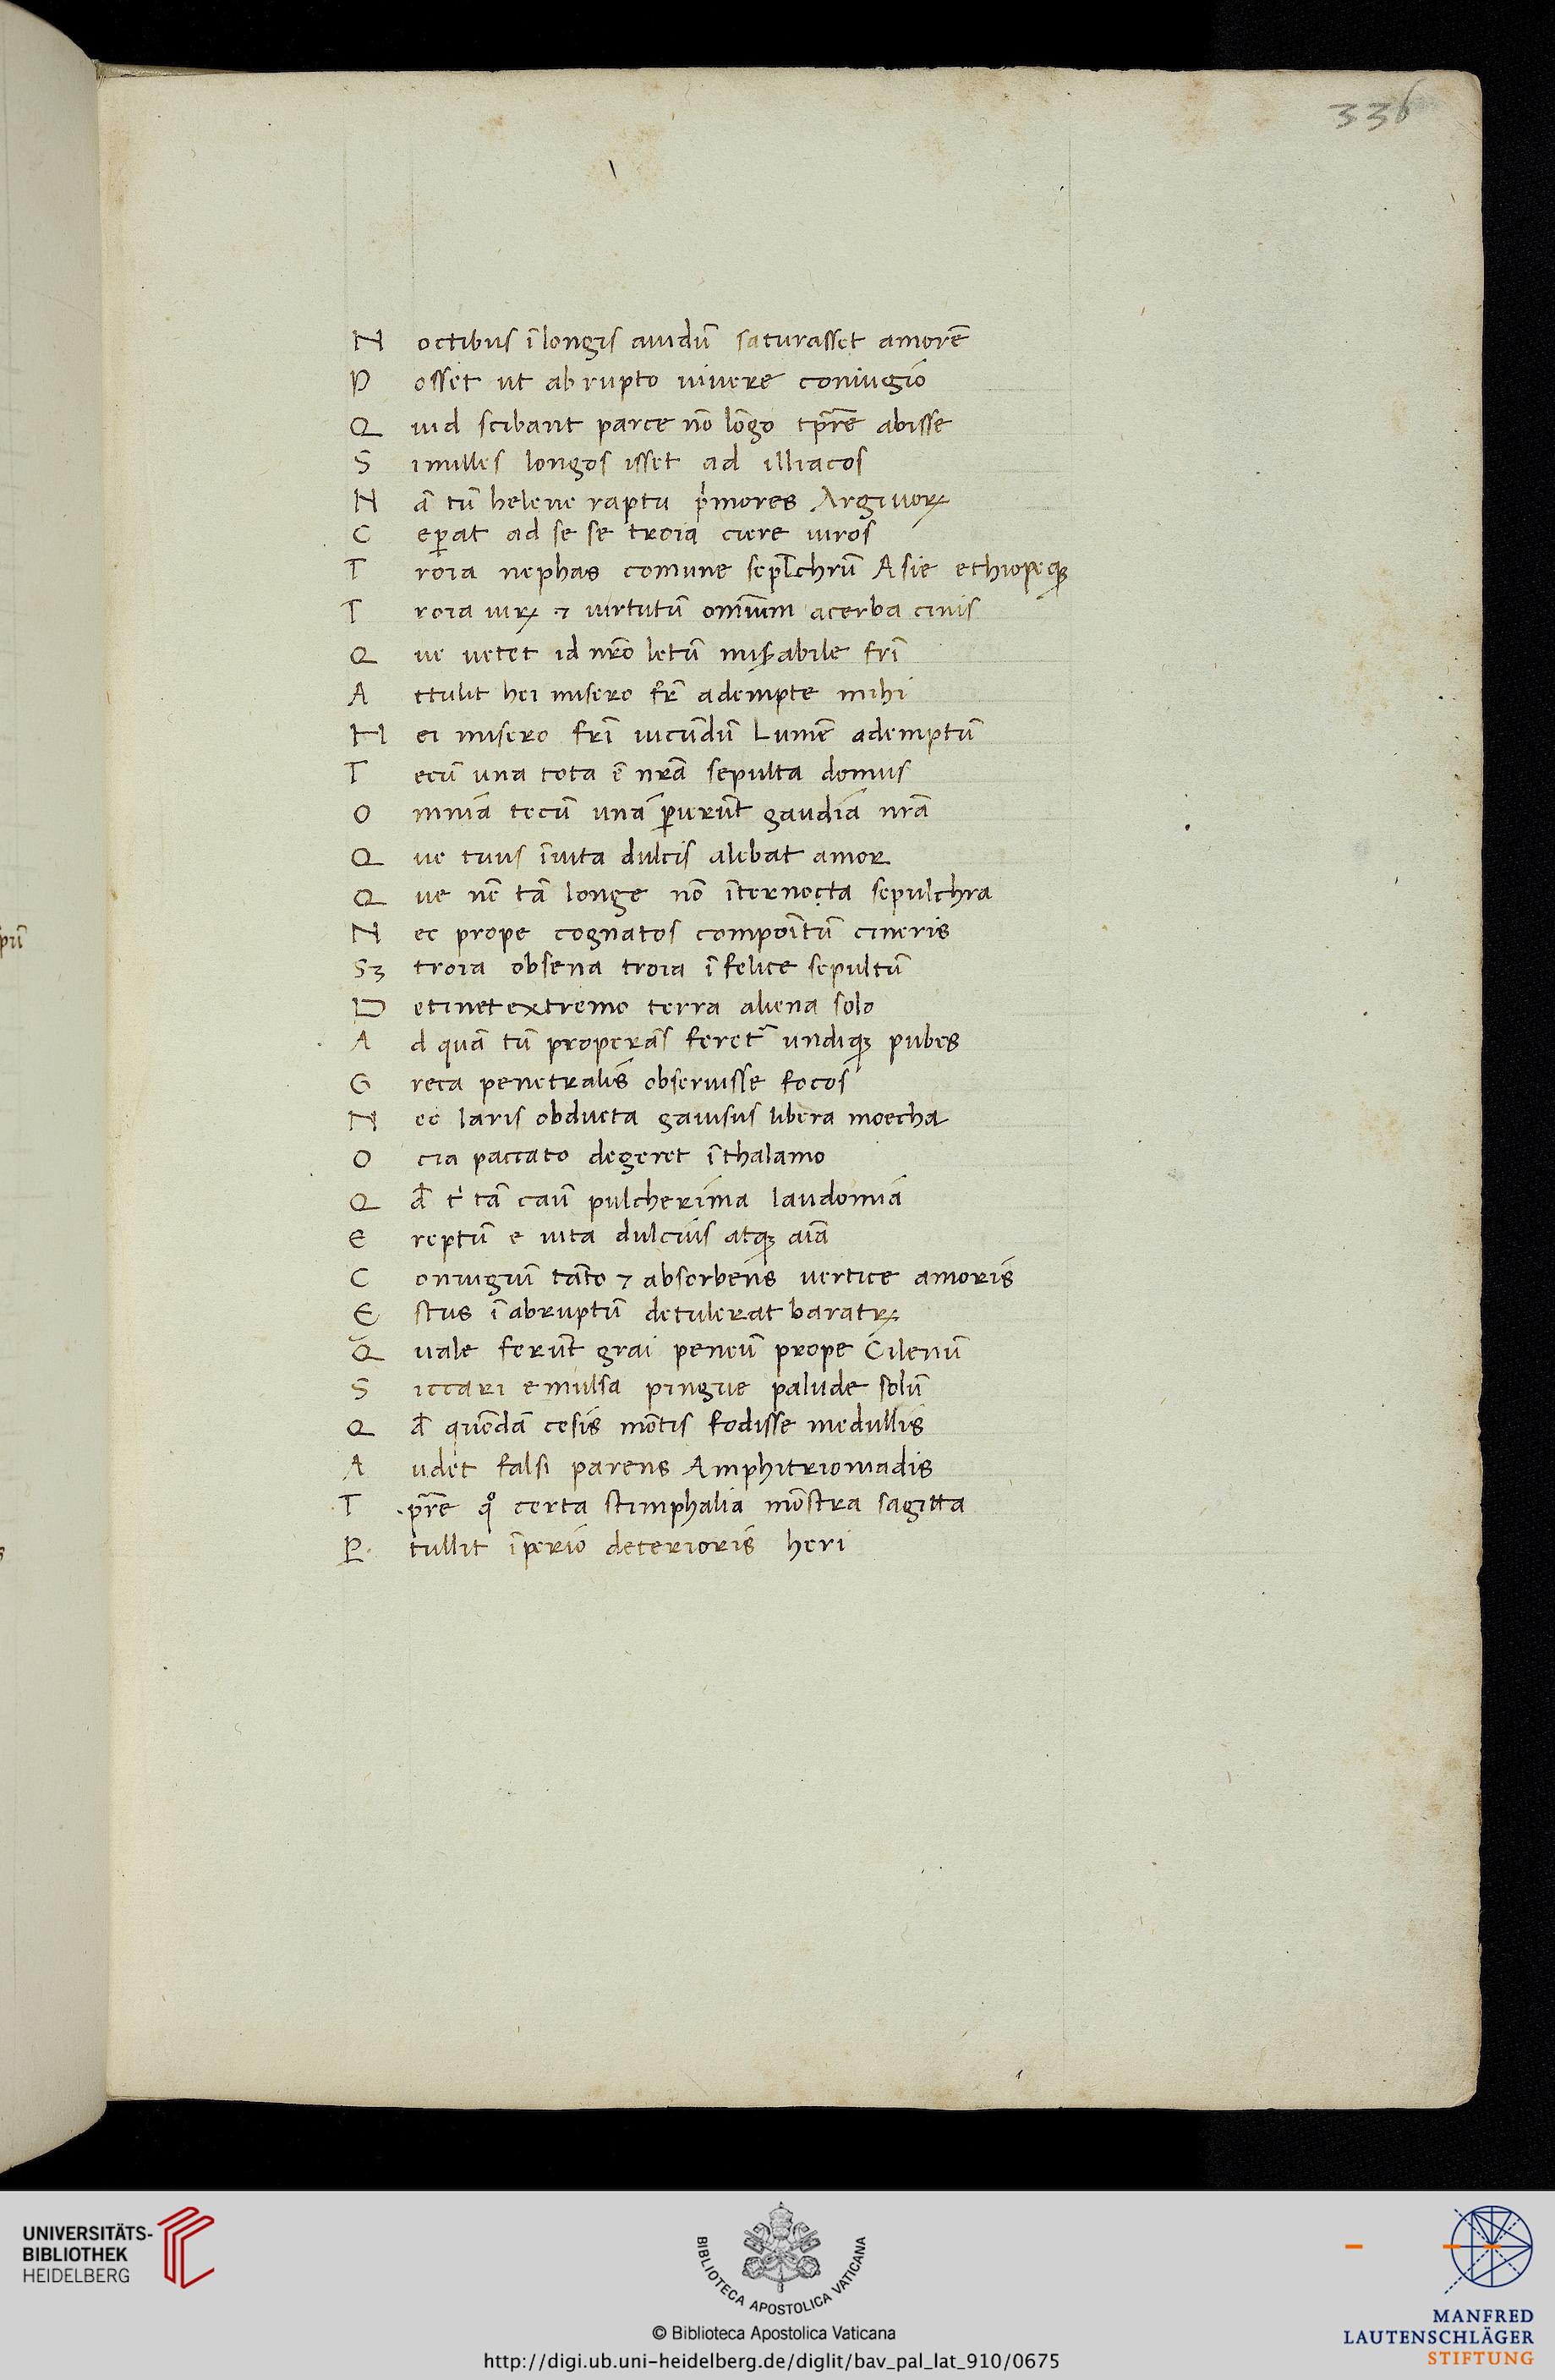 336
N octibus ī longis auidū saturasset amorē
P osset ut abrupto uivere coniugio
Q uid scibant parce nō lōgo tp̄re abisse
S imilles longos isset ad illiacos
N ā tū helene raptu pⁱmores Argiuoꝝ
C eꝑat ad se se troia ciere uiros
T roia nephas comune sepl̄chrū Asie ethiopeqꝫ
T roia uirꝝ ⁊ uirtutū omīum acerba cinis
Q ue uetet id nr̄o letū mis̄abile fr̄i
A ttulit hei misero fr̄ adempte mihi
H ei misero fr̄i iucūdū Lumē ademptū
T ecū una tota ē nr̄a sepulta domus
O mnia tecū una ꝑierūt gaudia nr̄a
Q ue tuus ī uita dulcis alebat amor
Q ue nē tā longe nō īter nocta sepulchra
N ec prope cognatos compoītū cineris
Sꝫ troia obsena troia īfelice sepultū
D etinet extremo terra aliena solo
A d quā tū properās feret᷑ undiqꝫ pubes
G reca penetralis obseruisse focos
N ec laris obducta gauisus libera moecha
O cia paccato degeret ī thalamo
Q d̄ tⁱ tā caū pulcherima laudomia
E reptū e uita dulcius atqꝫ aīa
C oniugiū tāto ⁊ absorbens uertice amoris
E stus ī abruptū detulerat baratꝝ
Q uale ferūt grai peneū prope Cilenū
S iccari emulsa pingue palude solū
Q d̄ quōdā cesis mōtis fodisse medullis
A udet falsi parens Amphitrioniadis
T p̄re qº certa stimphalia mōstra sagitta
Ꝑ tullit īperio deterioris heri
pū
UNIVERSITÄTS-
BIBLIOTHEK
HEIDELBERG
BIBLIOTECA APOSTOLICA VATICANA
© Biblioteca Apostolica Vaticana
http://digi.ub.uni-heidelberg.de/diglit/bav_pal_lat_910/0675
MANFRED
LAUTENSCHLÄGER
STIFTUNG